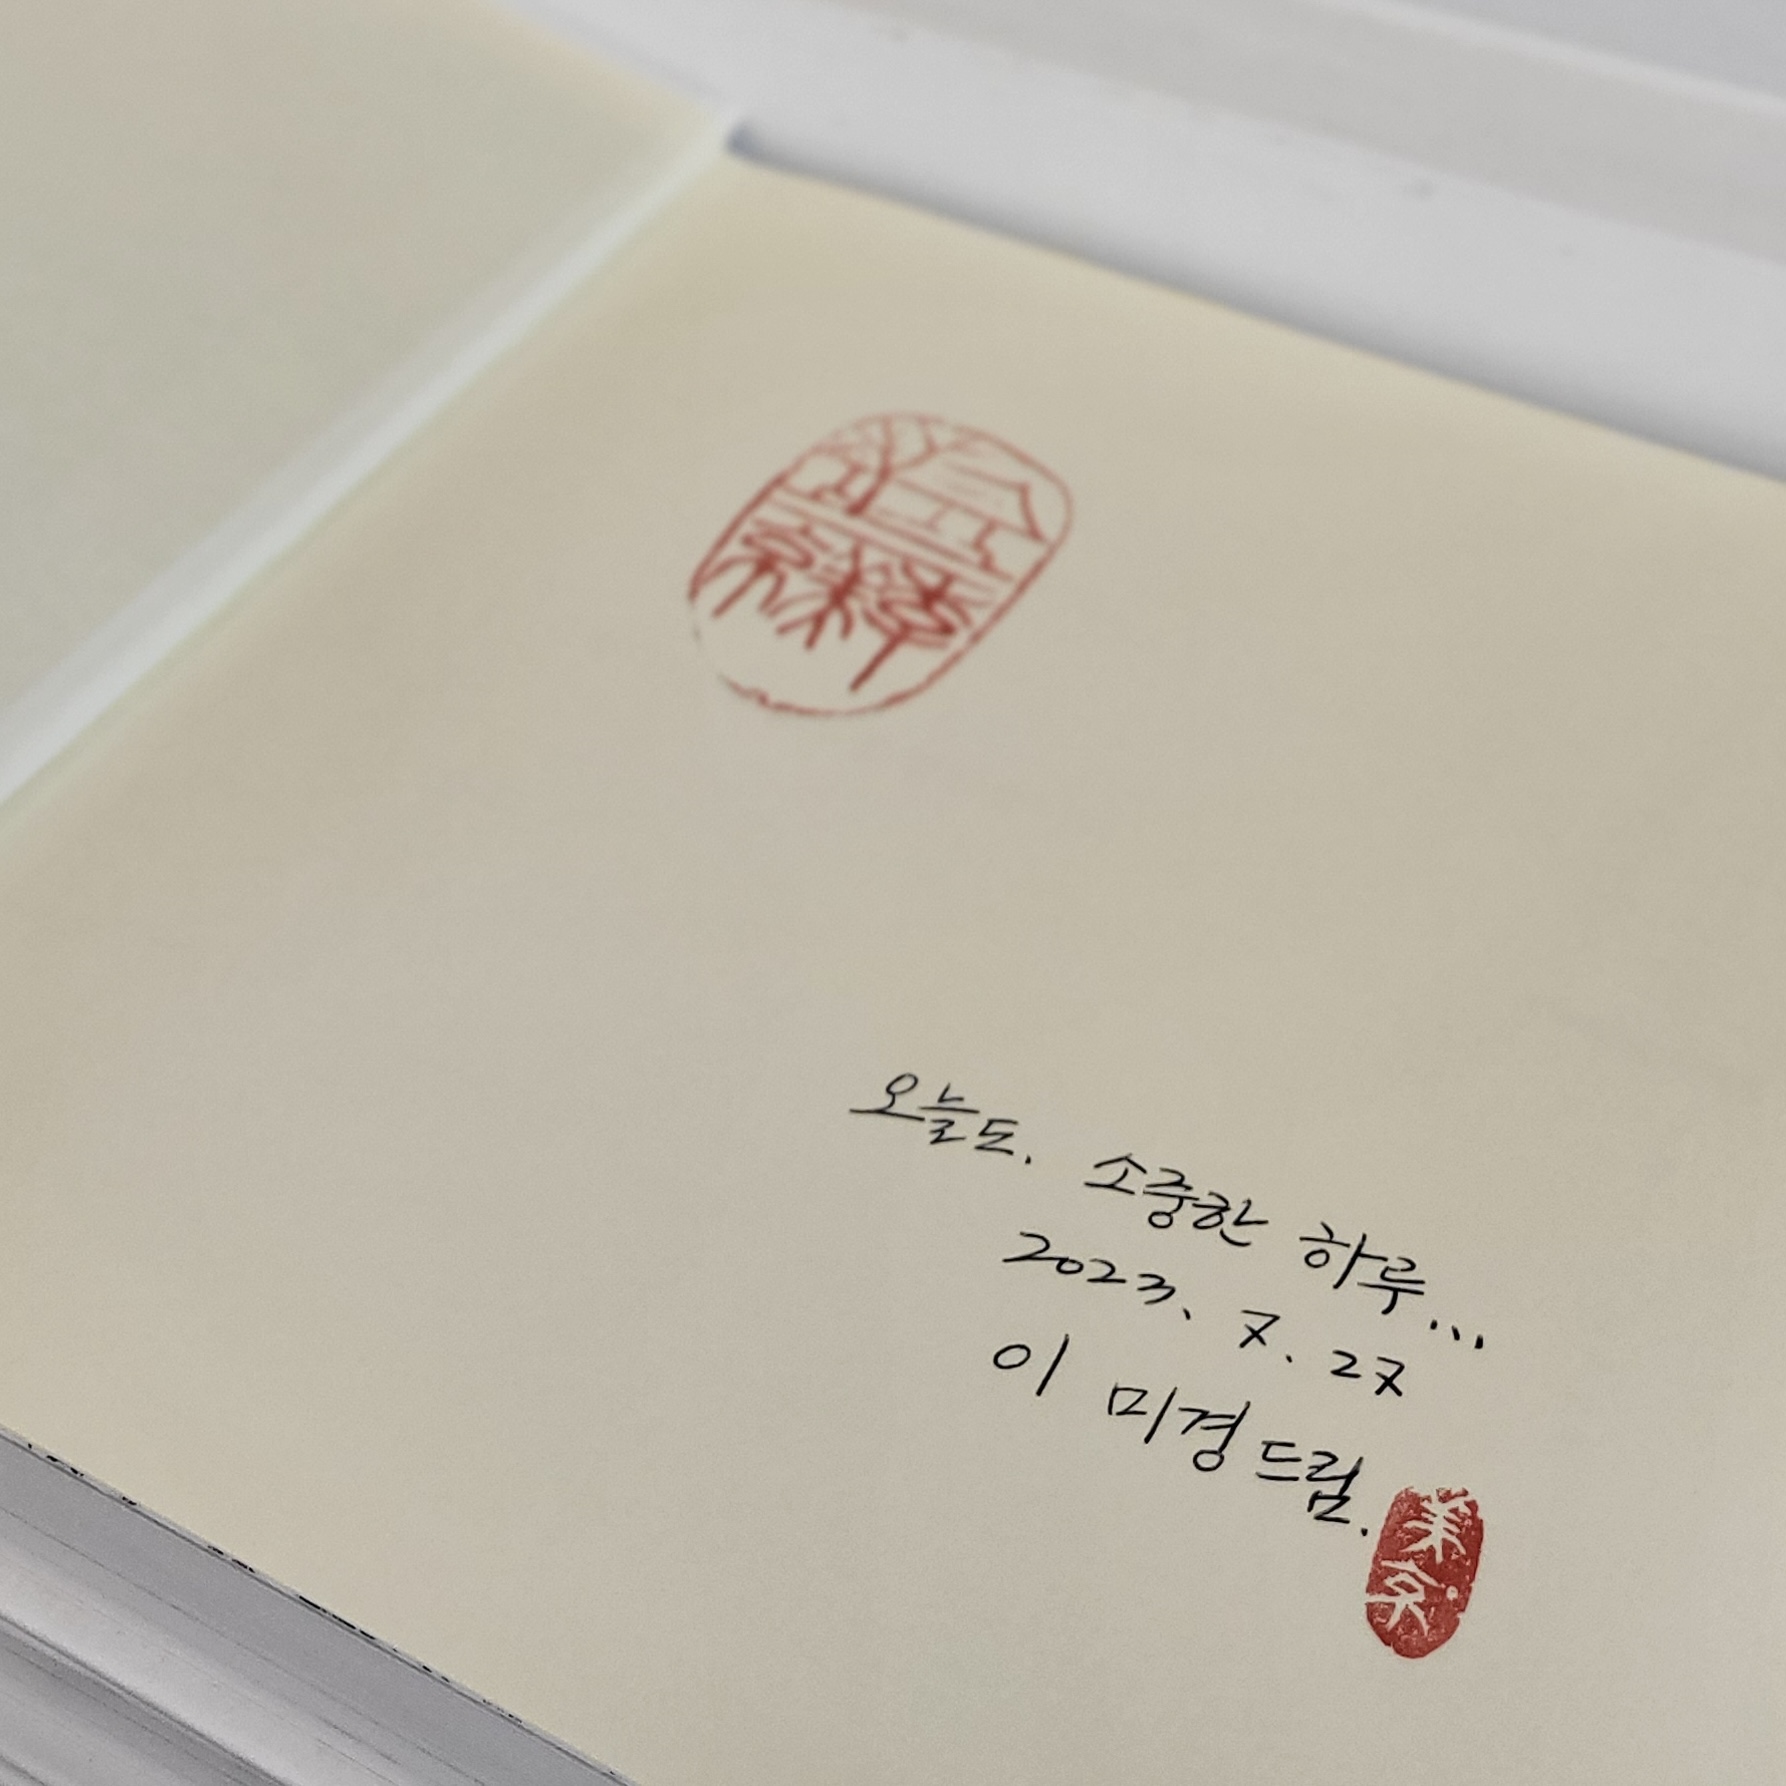 오늘도. 소중한 하루...
2023. 7. 27
이 미경 드림.
美京